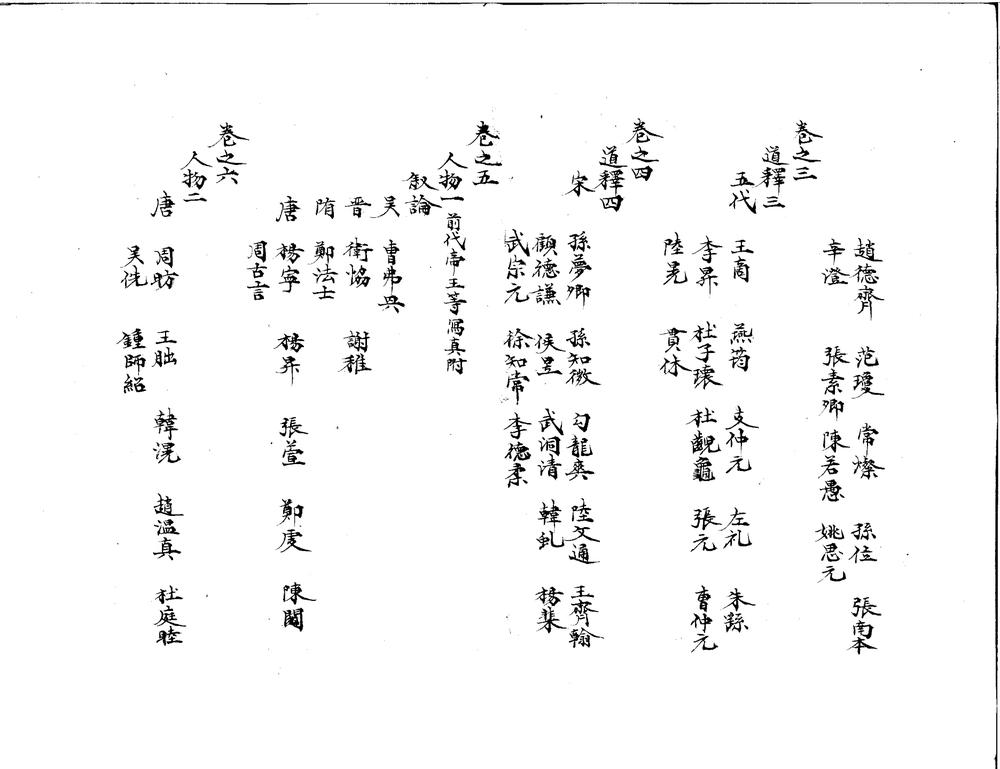 趙德齊 范瓊 常粲 孫位 張南本
辛澄 張素卿 陳若愚 姚思元
卷之三
道釋三
五代
王商 燕筠 支仲元 左礼 朱繇
李昇 杜子瓌 杜齯龜 張元 曹仲元
陸晃 貫休
卷之四
道釋四
宋
孫夢卿 孫知微 勾龍爽 陸文通 王齊翰
顧德謙 侯翌 武洞清 韓虬 楊棐
武宗元 徐知常 李德柔
卷之五
人物一 前代帝王等寫真附
叙論
吴 曹弗興
晋 衛協 謝稚
隋 鄭法士
唐 楊寧 楊昇 張萱 鄭虔 陳閎
周古言
卷之六
人物二
唐 周昉 王朏 韓滉 趙温真 杜庭睦
吴侁 鍾師紹